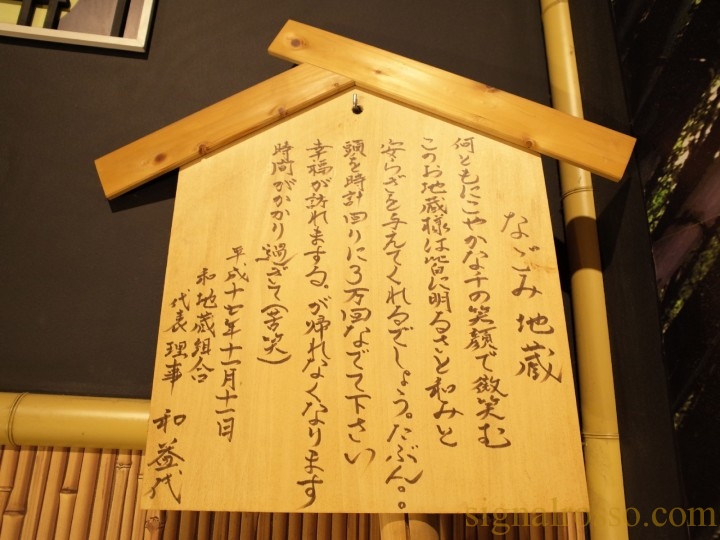 なごみ地蔵
何ともにこやかな千の笑顔で微笑む
このお地蔵様は皆に明るさと和みと
安らぎを与えてくれるでしょう。たぶん。。
頭を時計回りに3万回なでて下さい
幸福が訪れまする。が帰れなくなります
時間がかかり過ぎて(苦笑)
平成十七年十一月十一日
和地蔵組合
代表理事 和益代
signalrosso.com